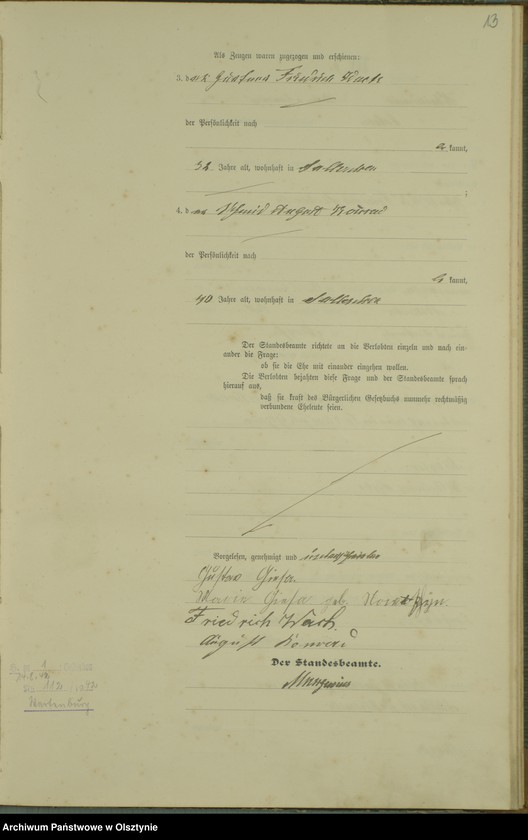 13
Als Zeugen waren zugezogen und erschienen:
3. der Friedrich
der Persönlichkeit nach
kannt,
52 Jahre alt, wohnhaft in
;
4. d August Konrad
der Persönlichkeit nach
kannt,
40 Jahre alt, wohnhaft in
Der Standesbeamte richtete an die Verlobten einzeln und nach ein-
ander die Frage:
ob sie die Ehe mit einander eingehen wollen.
Die Verlobten bejahten diese Frage und der Standesbeamte sprach
hierauf aus,
daß sie kraft des Bürgerlichen Gesetzbuchs nunmehr rechtmäßig
verbundene Eheleute seien.
Vorgelesen, genehmigt und unterschrieben
Gustav Giesa.
Marie Giesa geb.
Friedrich Wach
August Konrad
Der Standesbeamte.
Marienburg
Archiwum Państwowe w Olsztynie